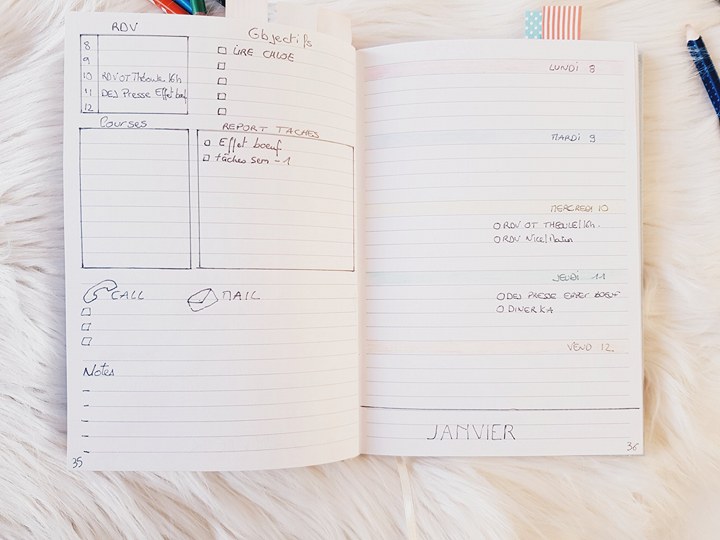 RDV
8
9
10 RDV OT Théoule 16h
11 DEJ Presse Effet bœuf
12
Objectifs
LIRE CHLOE
Courses
REPORT TACHES
Effet boeuf
tâches sem -1
CALL
MAIL
Notes
35
LUNDI 8
MARDI 9
MERCREDI 10
RDV OT THEOULE/16h.
RDV Nice/
JEUDI 11
DEJ PRESSE EFFET BOEUF
DINER KA
VEND 12
JANVIER
36